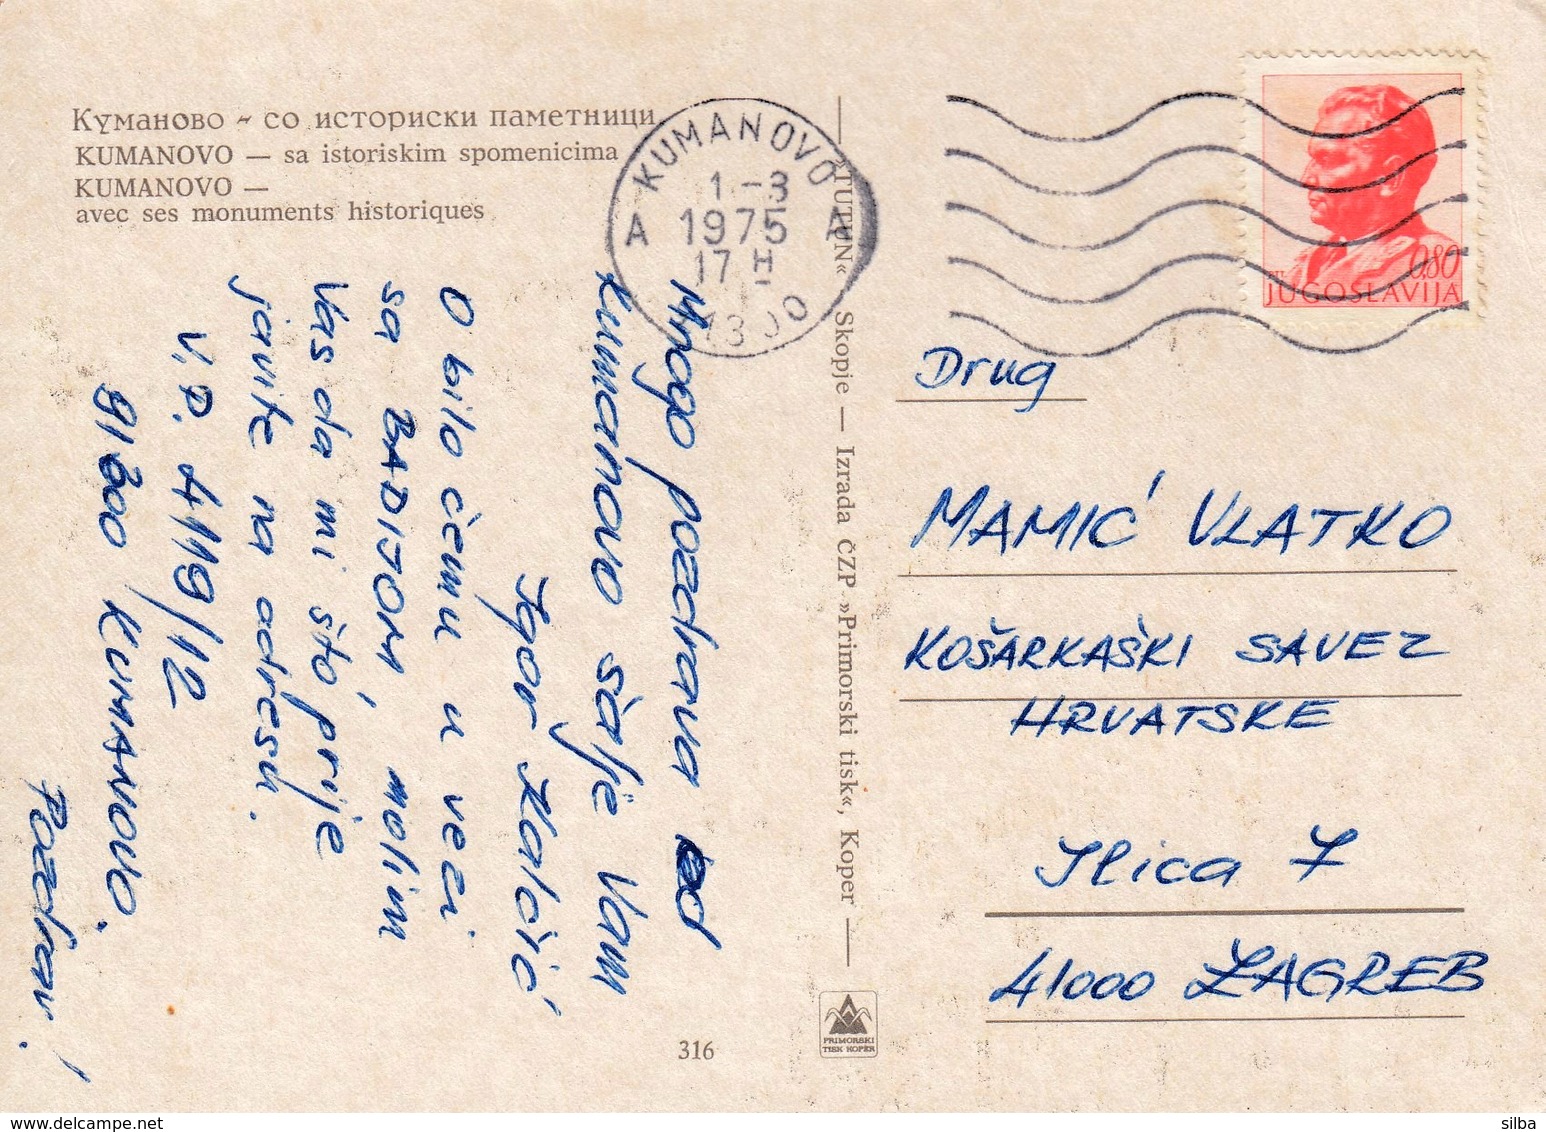 Куманово ~ со историски паметници
KUMANOVO — sa istoriskim spomenicima
KUMANOVO —
avec ses monuments historiques
KUMANOVO
1-3
A 1975 A
17 H
JUGOSLAVIJA
0.80
Mnogo pozdrava od
Kumanovo šalje Vam
Igor
O bilo čemu u vezi
sa BADIJOM, molim
Vas da mi što prije
javite na adresu.
V.P. 4119/12
91300 KUMANOVO.
Pozdrav!
»TUTUN« Skopje — Izrada ČZP »Primorski tisk«, Koper
Drug
MAMIĆ VLATKO
KOŠARKAŠKI SAVEZ
HRVATSKE
Ilica 7
41000 ZAGREB
316
PRIMORSKI
TISK KOPER
delcampe.net
silba